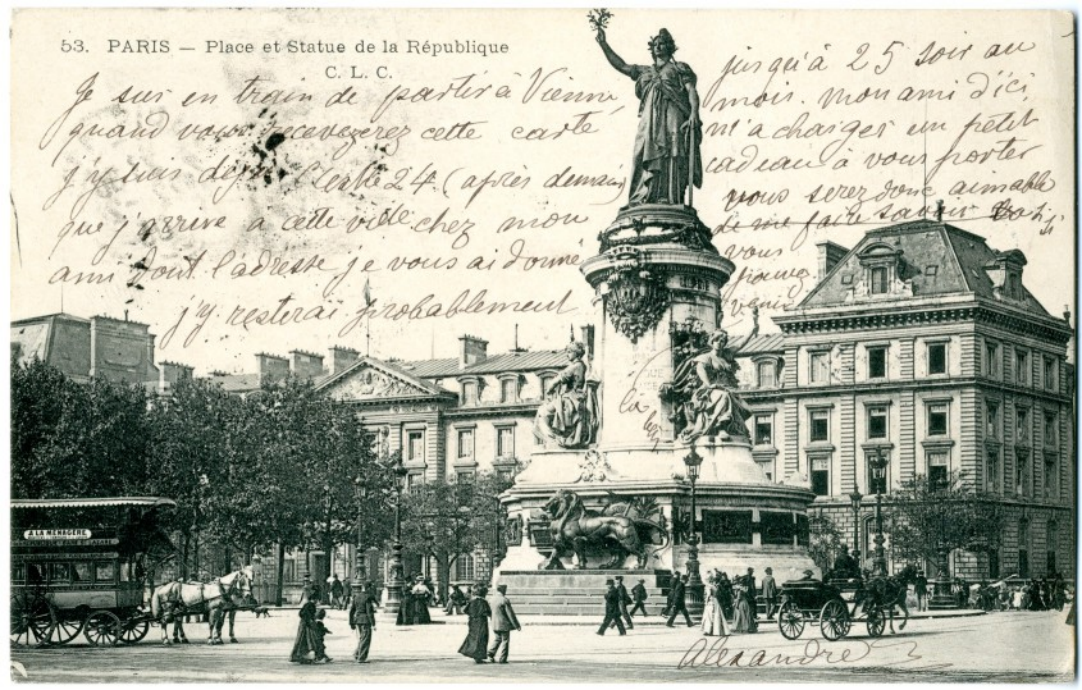 53. PARIS — Place et Statue de la République
C. L. C.
Je suis en train de partir à Vienne,
quand vous recevezerez cette carte
j'y suis déjà. C'est le 24 (après demain)
que j'arrive a cette ville chez mon
ami dont l'adresse je vous ai donné
j'y resterai probablement
jusqu'à 25 soir au
mois. mon ami d'ici,
m'a charges un petit
cadeau à vous porter
vous serez donc aimable
de me faire savoir si
vous
pouvez
venir
là
Alexandre
À LA MÉNAGÈRE